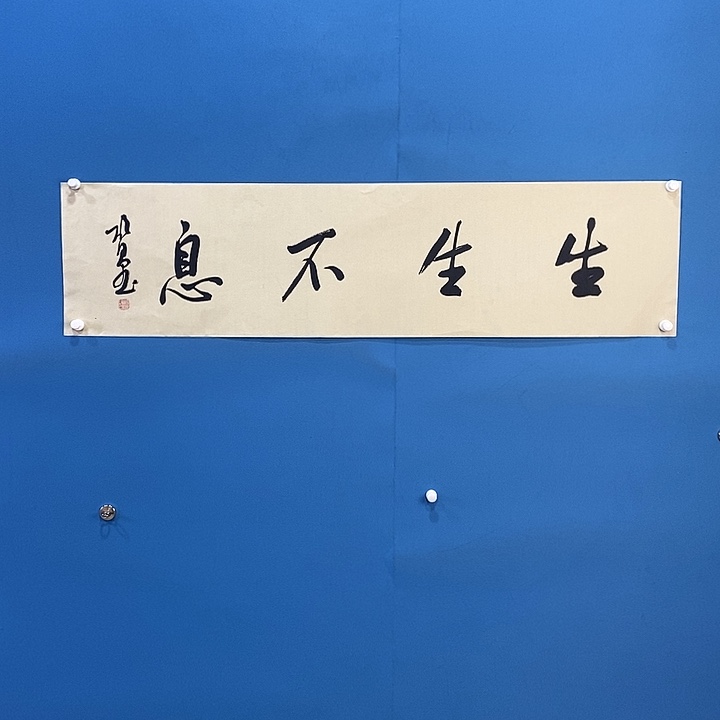 生生不息